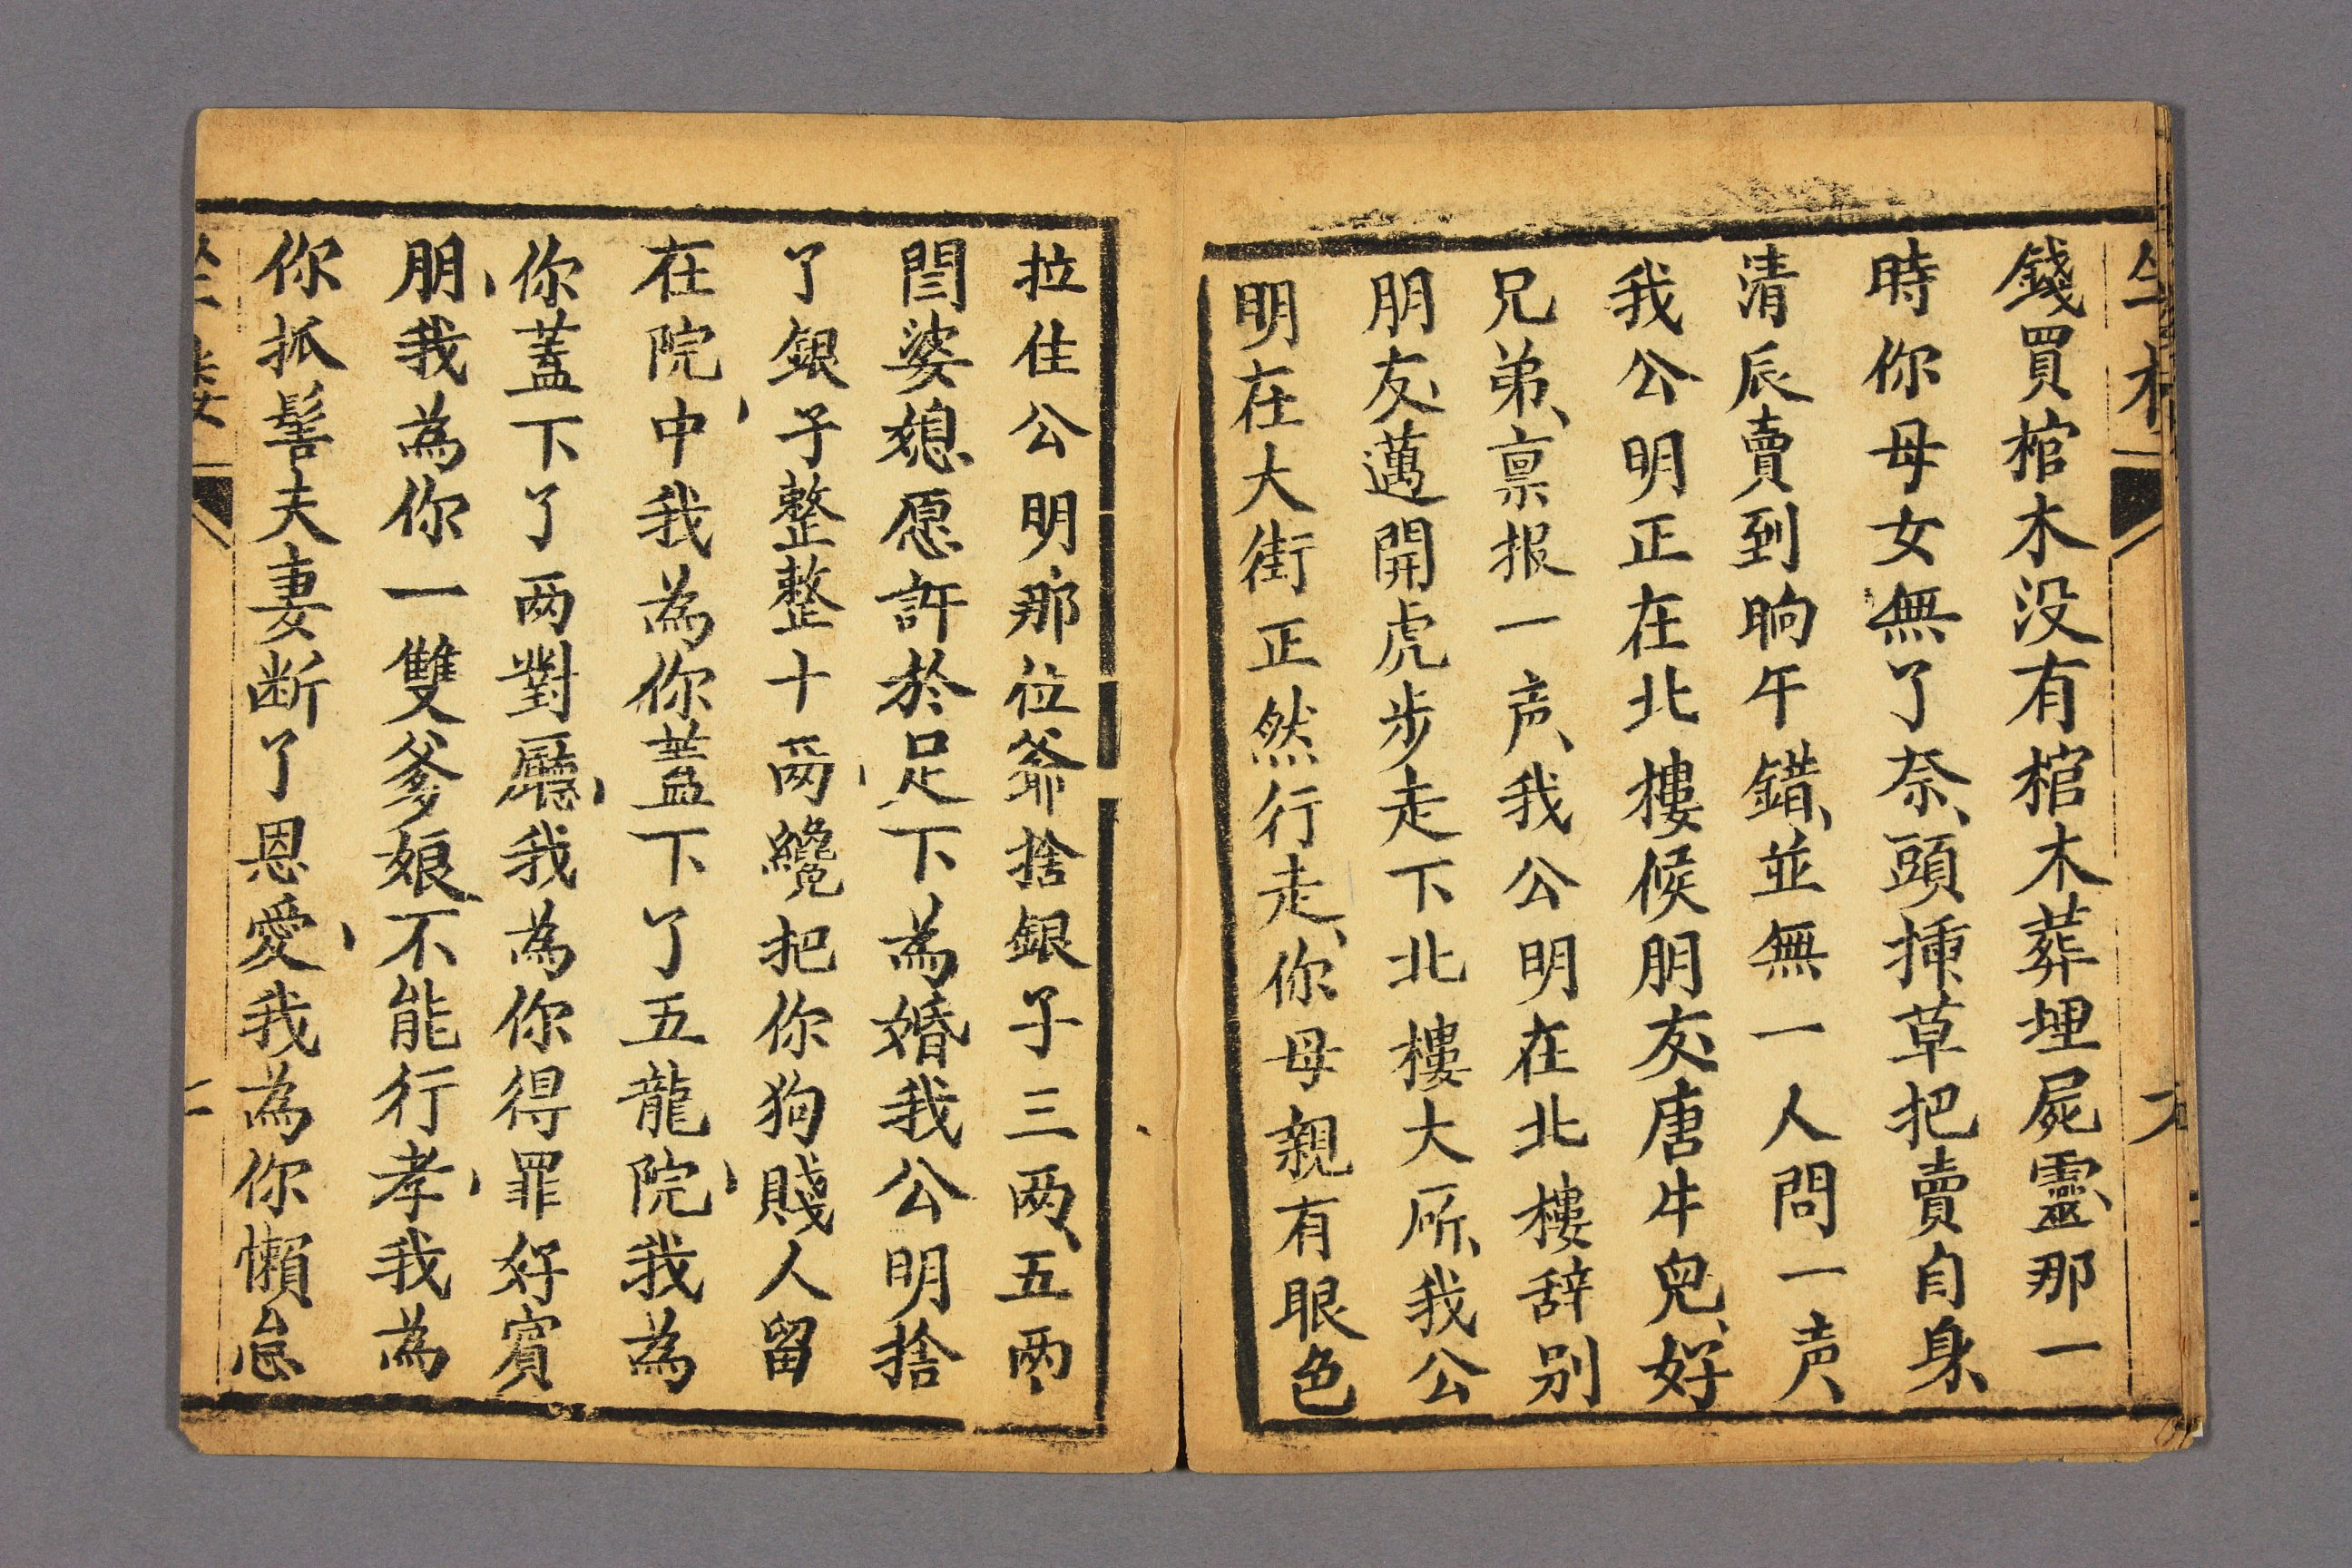 錢買棺木没有棺木葬埋屍靈、那一
時你母女無了奈、頭揷草把賣自身、
清辰賣到晌午錯、並無一人問一声、
我公明正在北樓候朋友唐牛兒、好
兄弟、禀报一声、我公明在北樓辞别
朋友、邁開虎步走下北樓大所、我公
明在大街正然行走、你母親有眼色
拉住公明那位爺捨銀子三两、五两、
閆婆媳愿許於足下為婚我公明捨
了銀子整整十两、纔把你狗賤人留
在院中、我為你蓋下了五龍院、我為
你蓋下了两對廳、我為你得罪好賓
朋、我為你一雙爹娘不能行孝、我為
你抓髻夫妻断了恩愛、我為你懶怠